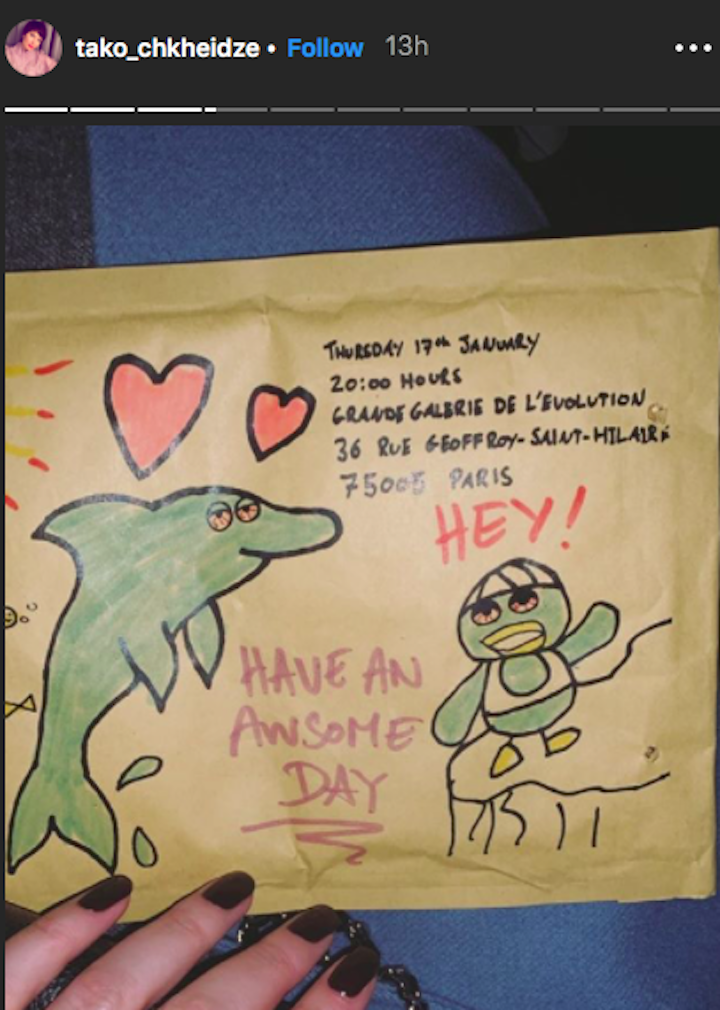 tako_chkheidze • Follow 13h
THURSDAY 17th JANUARY
20:00 HOURS
GRANDE GALERIE DE L'EVOLUTION
36 RUE GEOFFROY-SAINT-HILAIRE
75005 PARIS
HEY!
HAVE AN
AWSOME
DAY